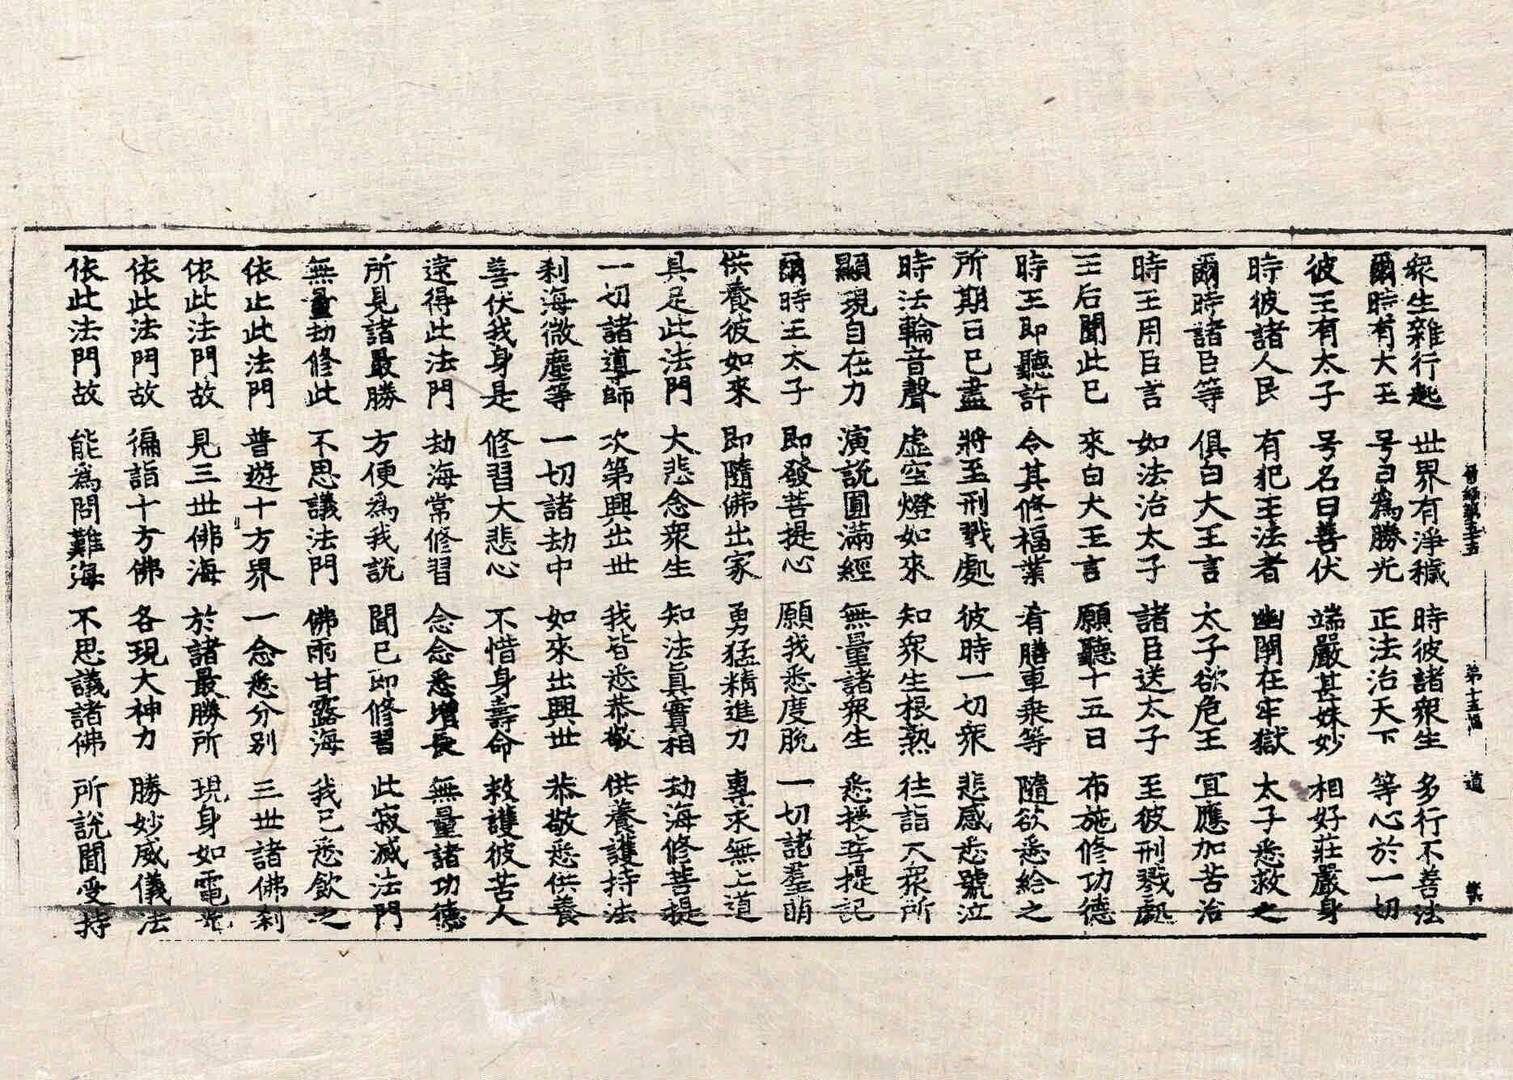 衆生雜行起 世界有淨穢 時彼諸衆生 多行不善法
爾時有大王 号曰為勝光 正法治天下 等心於一切
彼王有太子 号名曰善伏 端嚴甚姝妙 相好莊嚴身
時彼諸人民 有犯王法者 幽閉在牢獄 太子悉救之
爾時諸臣等 俱白大王言 太子欲危王 宜應加苦治
時王用臣言 如法治太子 諸臣送太子 至彼刑戮處
王后聞此已 來白大王言 願聽十五日 布施修功德
時王即聽許 令其修福業 有膳車乘等 隨欲悉給之
所期日已盡 將至刑戮處 彼時一切衆 悲感悉號泣
時法輪音聲 虛空燈如來 知衆生根熟 往詣大衆所
顯現自在力 演說圓滿經 無量諸衆生 悉授菩提記
爾時王太子 即發菩提心 願我悉度脫 一切諸羣萌
供養彼如來 即隨佛出家 勇猛精進力 專求無上道
具足此法門 大悲念衆生 知法眞實相 劫海修菩提
一切諸導師 次第興出世 我皆悉恭敬 供養護持法
剎海微塵等 一切諸劫中 如來出興世 恭敬悉供養
善伏我身是 修習大悲心 不惜身壽命 救護彼苦人
遠得此法門 劫海常修習 念念悉增長 無量諸功德
所見諸最勝 方便為我說 聞已即修習 此寂滅法門
無量劫修此 不思議法門 佛雨甘露海 我已悉飲之
依止此法門 普遊十方界 一念悉分別 三世諸佛剎
依此法門故 見三世佛海 於諸最勝所 現身如電光
依此法門故 徧詣十方佛 各現大神力 勝妙威儀法
依此法門故 能為問難海 不思議諸佛 所說聞受持
晉經第五十五 第十五 道